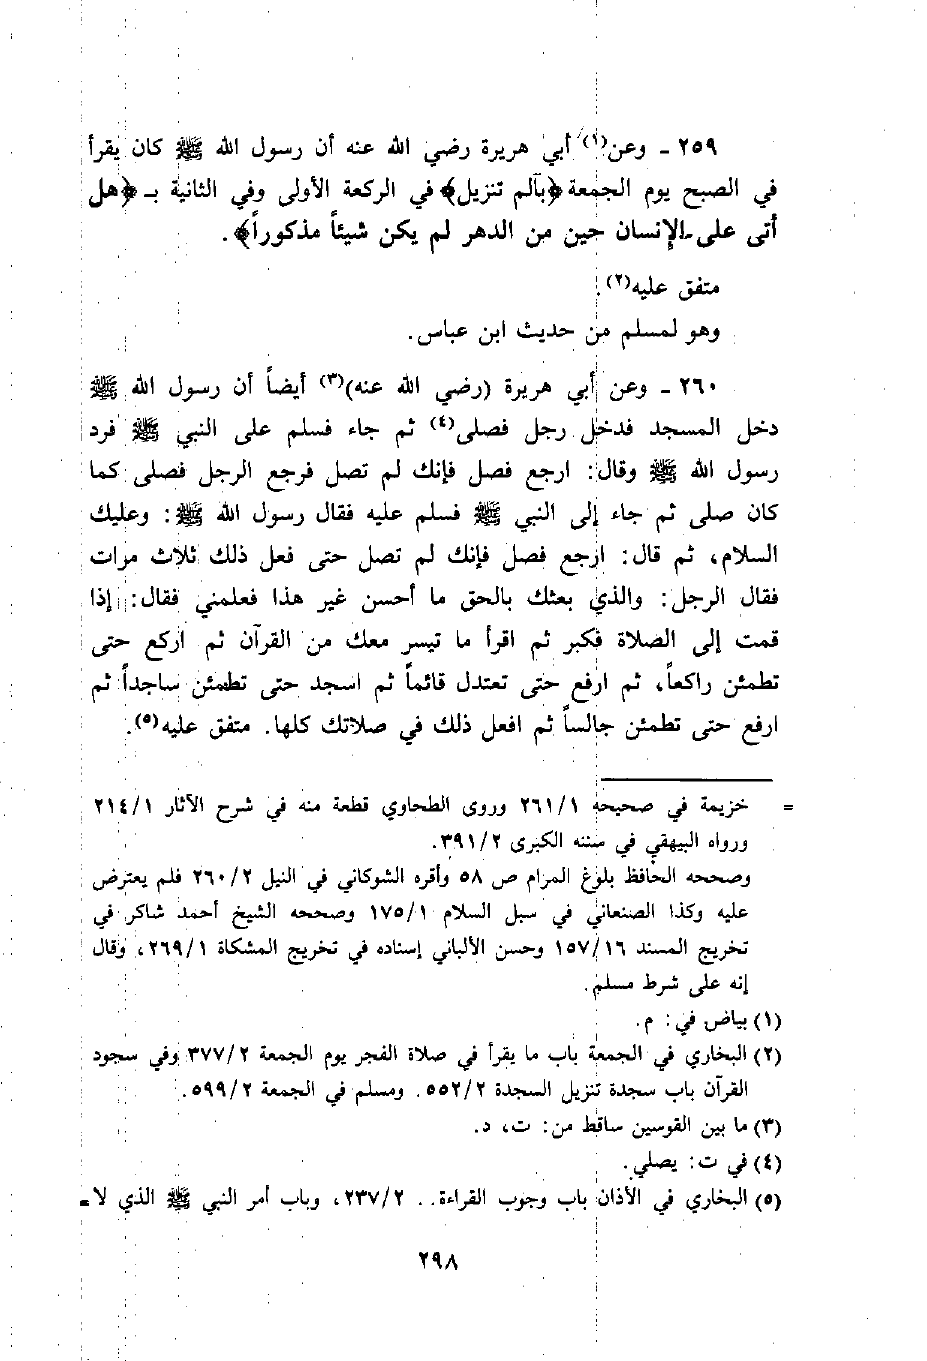 ٢٥٩ ـ وعن(١) أبي هريرة رضي الله عنه أن رسول الله ﷺ كان يقرأ
في الصبح يوم الجمعة ﴿بآلم تنزيل﴾ في الركعة الأولى وفي الثانية بـ ﴿هل
أتى على الإنسان حين من الدهر لم يكن شيئاً مذكوراً﴾.
متفق عليه(٢).
وهو لمسلم من حديث ابن عباس.
٢٦٠ ـ وعن أبي هريرة (رضي الله عنه)(٣) أيضاً أن رسول الله ﷺ
دخل المسجد فدخل رجل فصلى(٤) ثم جاء فسلم على النبي ﷺ فرد
رسول الله ﷺ وقال: ارجع فصل فإنك لم تصل فرجع الرجل فصلى كما
كان صلى ثم جاء إلى النبي ﷺ فسلم عليه فقال رسول الله ﷺ: وعليك
السلام، ثم قال: ارجع فصل فإنك لم تصل حتى فعل ذلك ثلاث مرات
فقال الرجل: والذي بعثك بالحق ما أحسن غير هذا فعلمني فقال: إذا
قمت إلى الصلاة فكبر ثم اقرأ ما تيسر معك من القرآن ثم اركع حتى
تطمئن راكعاً، ثم ارفع حتى تعتدل قائماً ثم اسجد حتى تطمئن ساجداً ثم
ارفع حتى تطمئن جالساً ثم افعل ذلك في صلاتك كلها. متفق عليه(٥).
= خزيمة في صحيحه ٢٦١/١ وروى الطحاوي قطعة منه في شرح الآثار ٢١٤/١
ورواه البيهقي في سننه الكبرى ٣٩١/٢.
وصححه الحافظ بلوغ المرام ص ٥٨ وأقره الشوكاني في النيل ٢٦٠/٢ فلم يعترض
عليه وكذا الصنعاني في سبل السلام ١٧٥/١ وصححه الشيخ أحمد شاكر في
تخريج المسند ١٥٧/١٦ وحسن الألباني إسناده في تخريج المشكاة ٢٦٩/١، وقال
إنه على شرط مسلم.
(١) بياض في: م.
(٢) البخاري في الجمعة باب ما يقرأ في صلاة الفجر يوم الجمعة ٣٧٧/٢ وفي سجود
القرآن باب سجدة تنزيل السجدة ٥٥٢/٢. ومسلم في الجمعة ٥٩٩/٢.
(٣) ما بين القوسين ساقط من: ت، د.
(٤) في ت: يصلي.
(٥) البخاري في الأذان باب وجوب القراءة.. ٢٣٧/٢، وباب أمر النبي ﷺ الذي لا =
٢٩٨